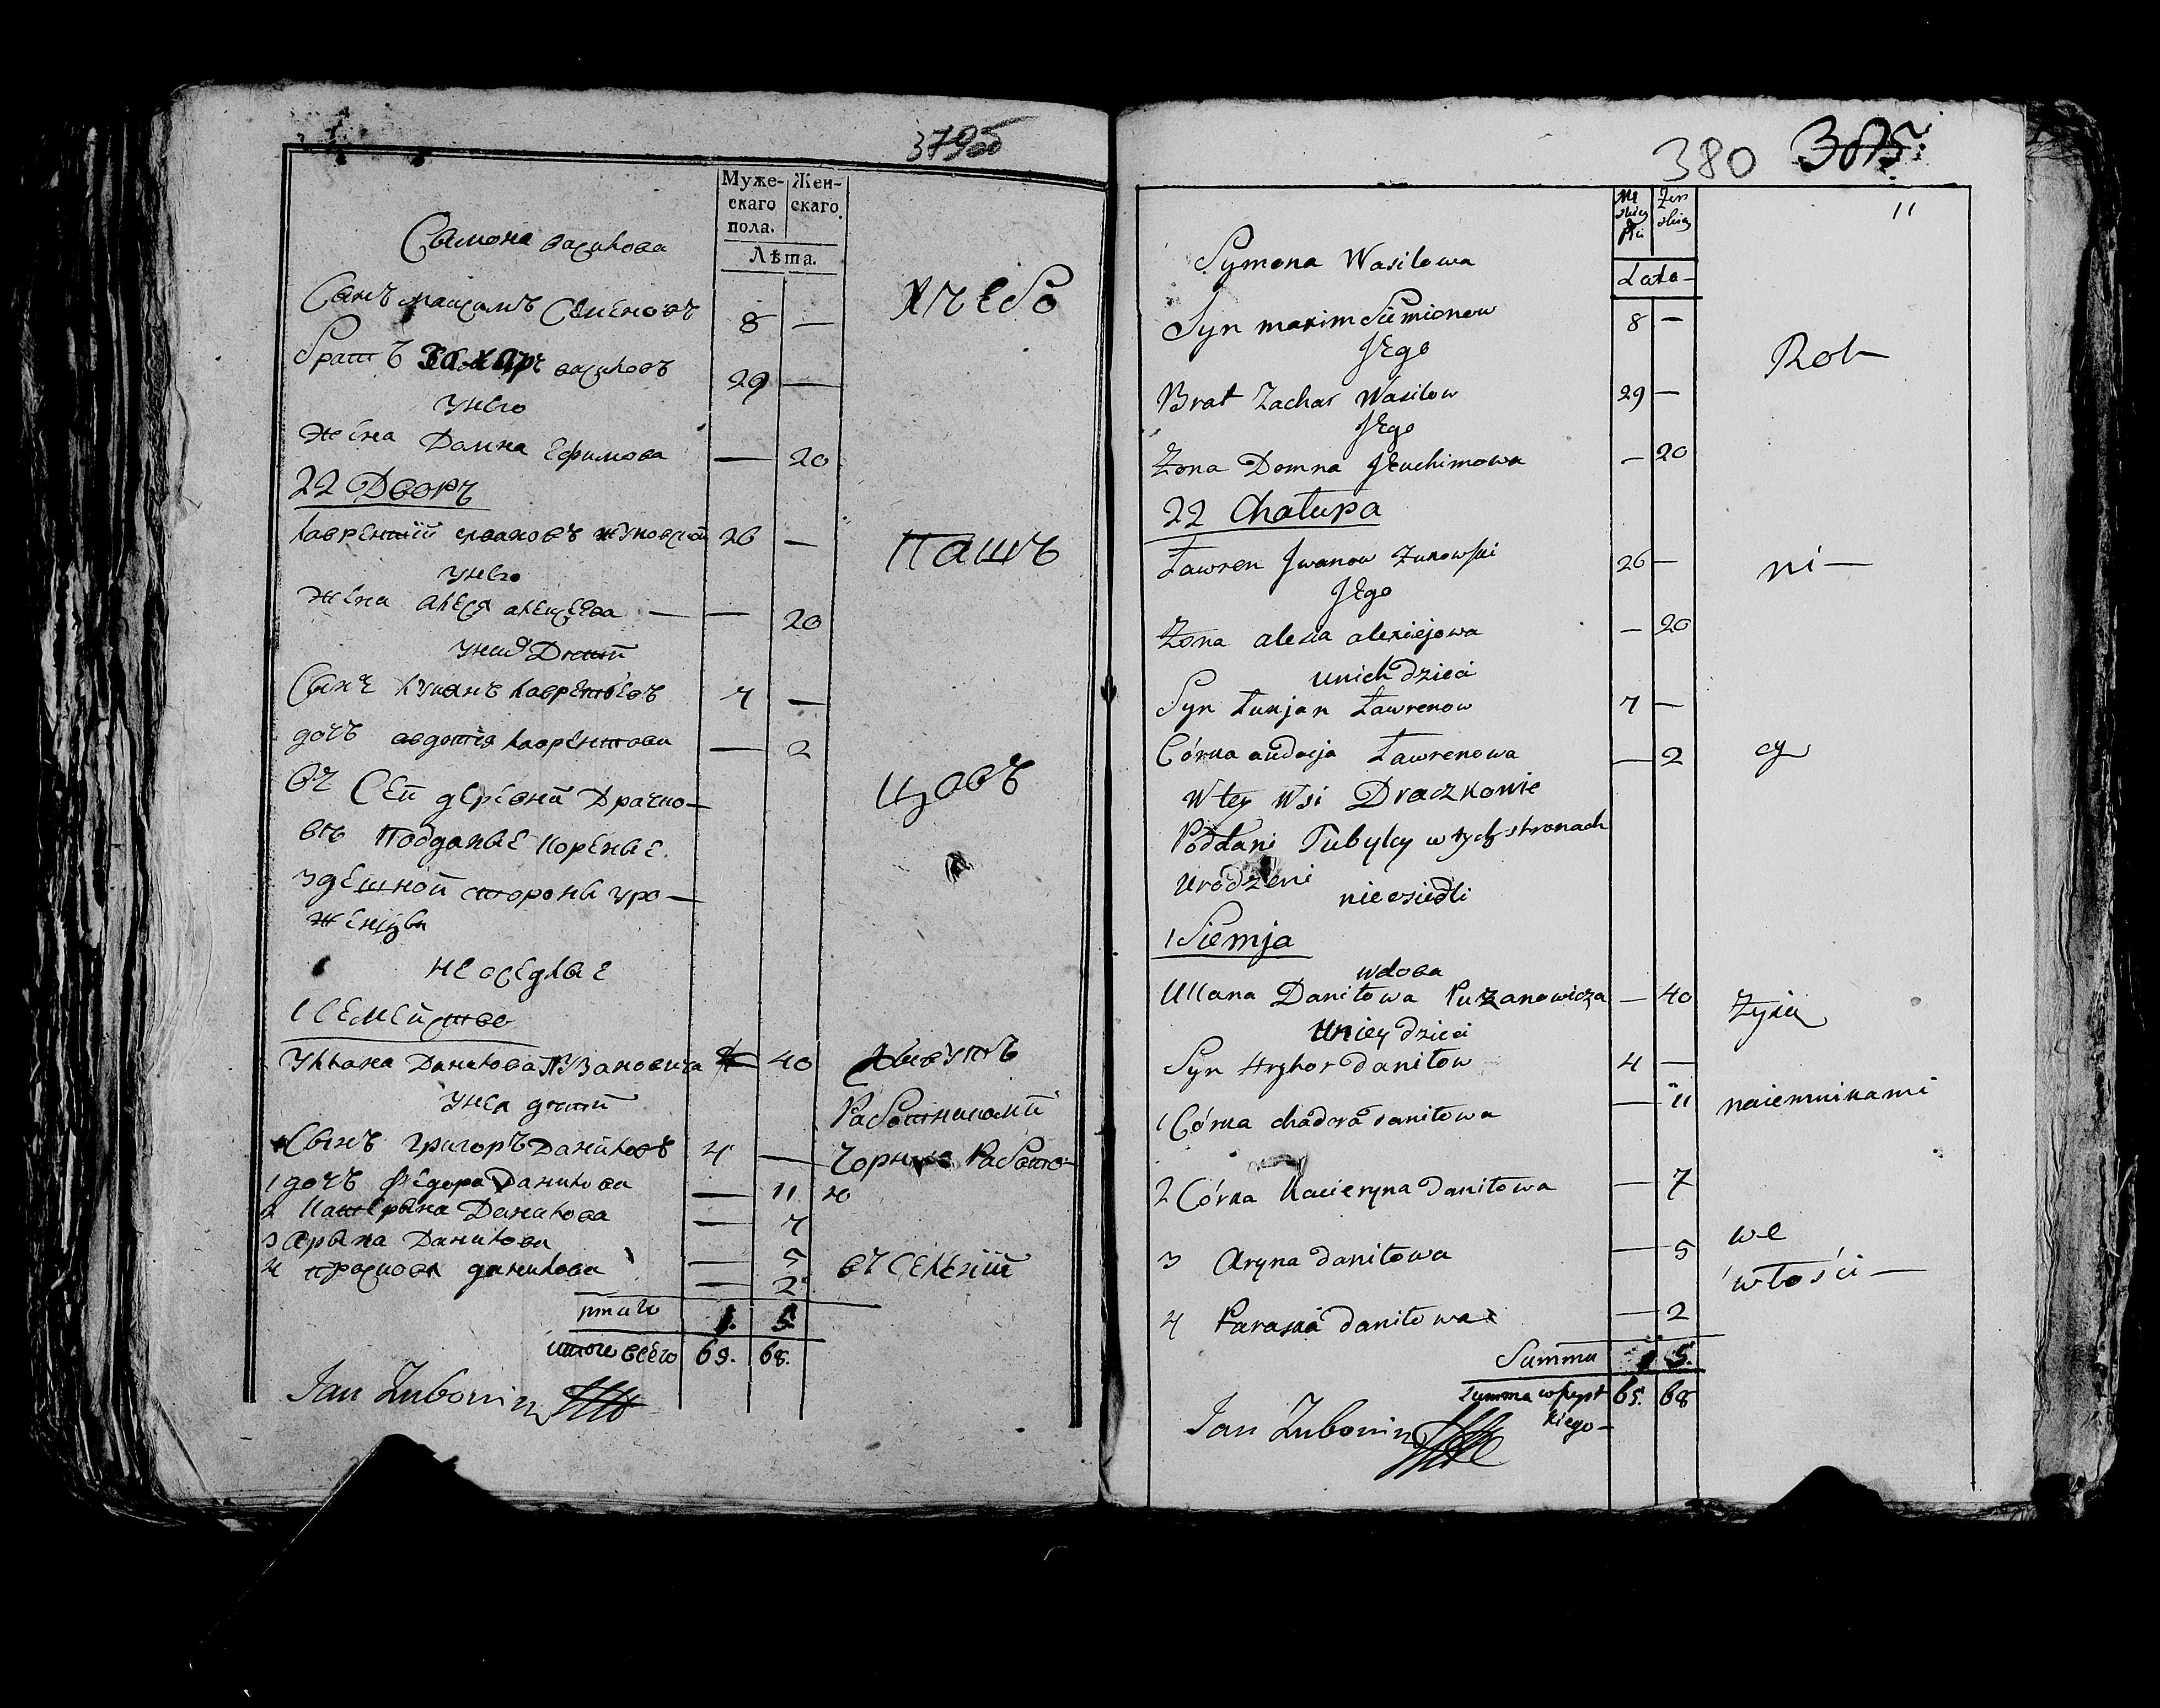 379об
Муже-
скаго
пола.
Жен-
скаго.
Лѣта.
Сымона василова
Сынъ Максимъ Семеновъ 8 —
хлебо
братъ Захаръ василовъ 29 —
унего
жена Домна Ефимова — 20
22 Дворъ
лаврентій ивановъ жуковскій 26 —
пашъ
унего
жена алеся алексеева — — 20
унихъ Дети
Сынъ лукянъ лаврентьевъ 7 —
дочъ авдотія лаврентова — 2
цовъ
въ Сей деревни Драчко-
въ Подданые Кореные
здешной стороны уро-
женцы
не оседлые
1 Семейство
Ульяна Данилова Пузановича 40
Живутъ
унея дети
Работниками
Сынъ григоръ Даниловъ 4 —
Чорную Работо-
ю
1 дочъ Федора Данилова — 11
2 Катерына Данилова — 7
3 Арына Данилова — 5
4 прасковя данилова — 2
въ Селеніи
итого 1. 5.
итого всего 69. 68.
Jan Zubowicz
380
11
Lata
Symona Wasilowa
Syn maxim Siemionow 8 —
Rol—
Jego
Brat Zachar Wasilow 29 —
Jego
Żona Domna Jeuchimowa — 20
22 Chałupa
Ławren Jwanow Żukowski 26 —
ni—
Jego
Żona alesia alexiejowa — 20
unich dzieci
Syn Łukjan Ławrenow 7 —
Córka audocja Ławrenowa — 2
cy
Wtey Wsi Draczkowie
Poddani Tubylcy w tych stronach
Urodzeni
nieosiedli
1 Siemja
wdowa
Ullana Daniłowa Puzanowicza — 40
Żyją
Uniey dzieci
Syn Hryhor Daniłow 4 —
1 Córka chadora Daniłowa — 11
naiemnikami
2 Córka Kacieryna Daniłowa — 7
3 Aryna Daniłowa — 5
we
włości—
4 Paraska Daniłowa — 2
Summa 1 5.
Summa wszyst 69. 68
kiego—
Jan Zubowicz